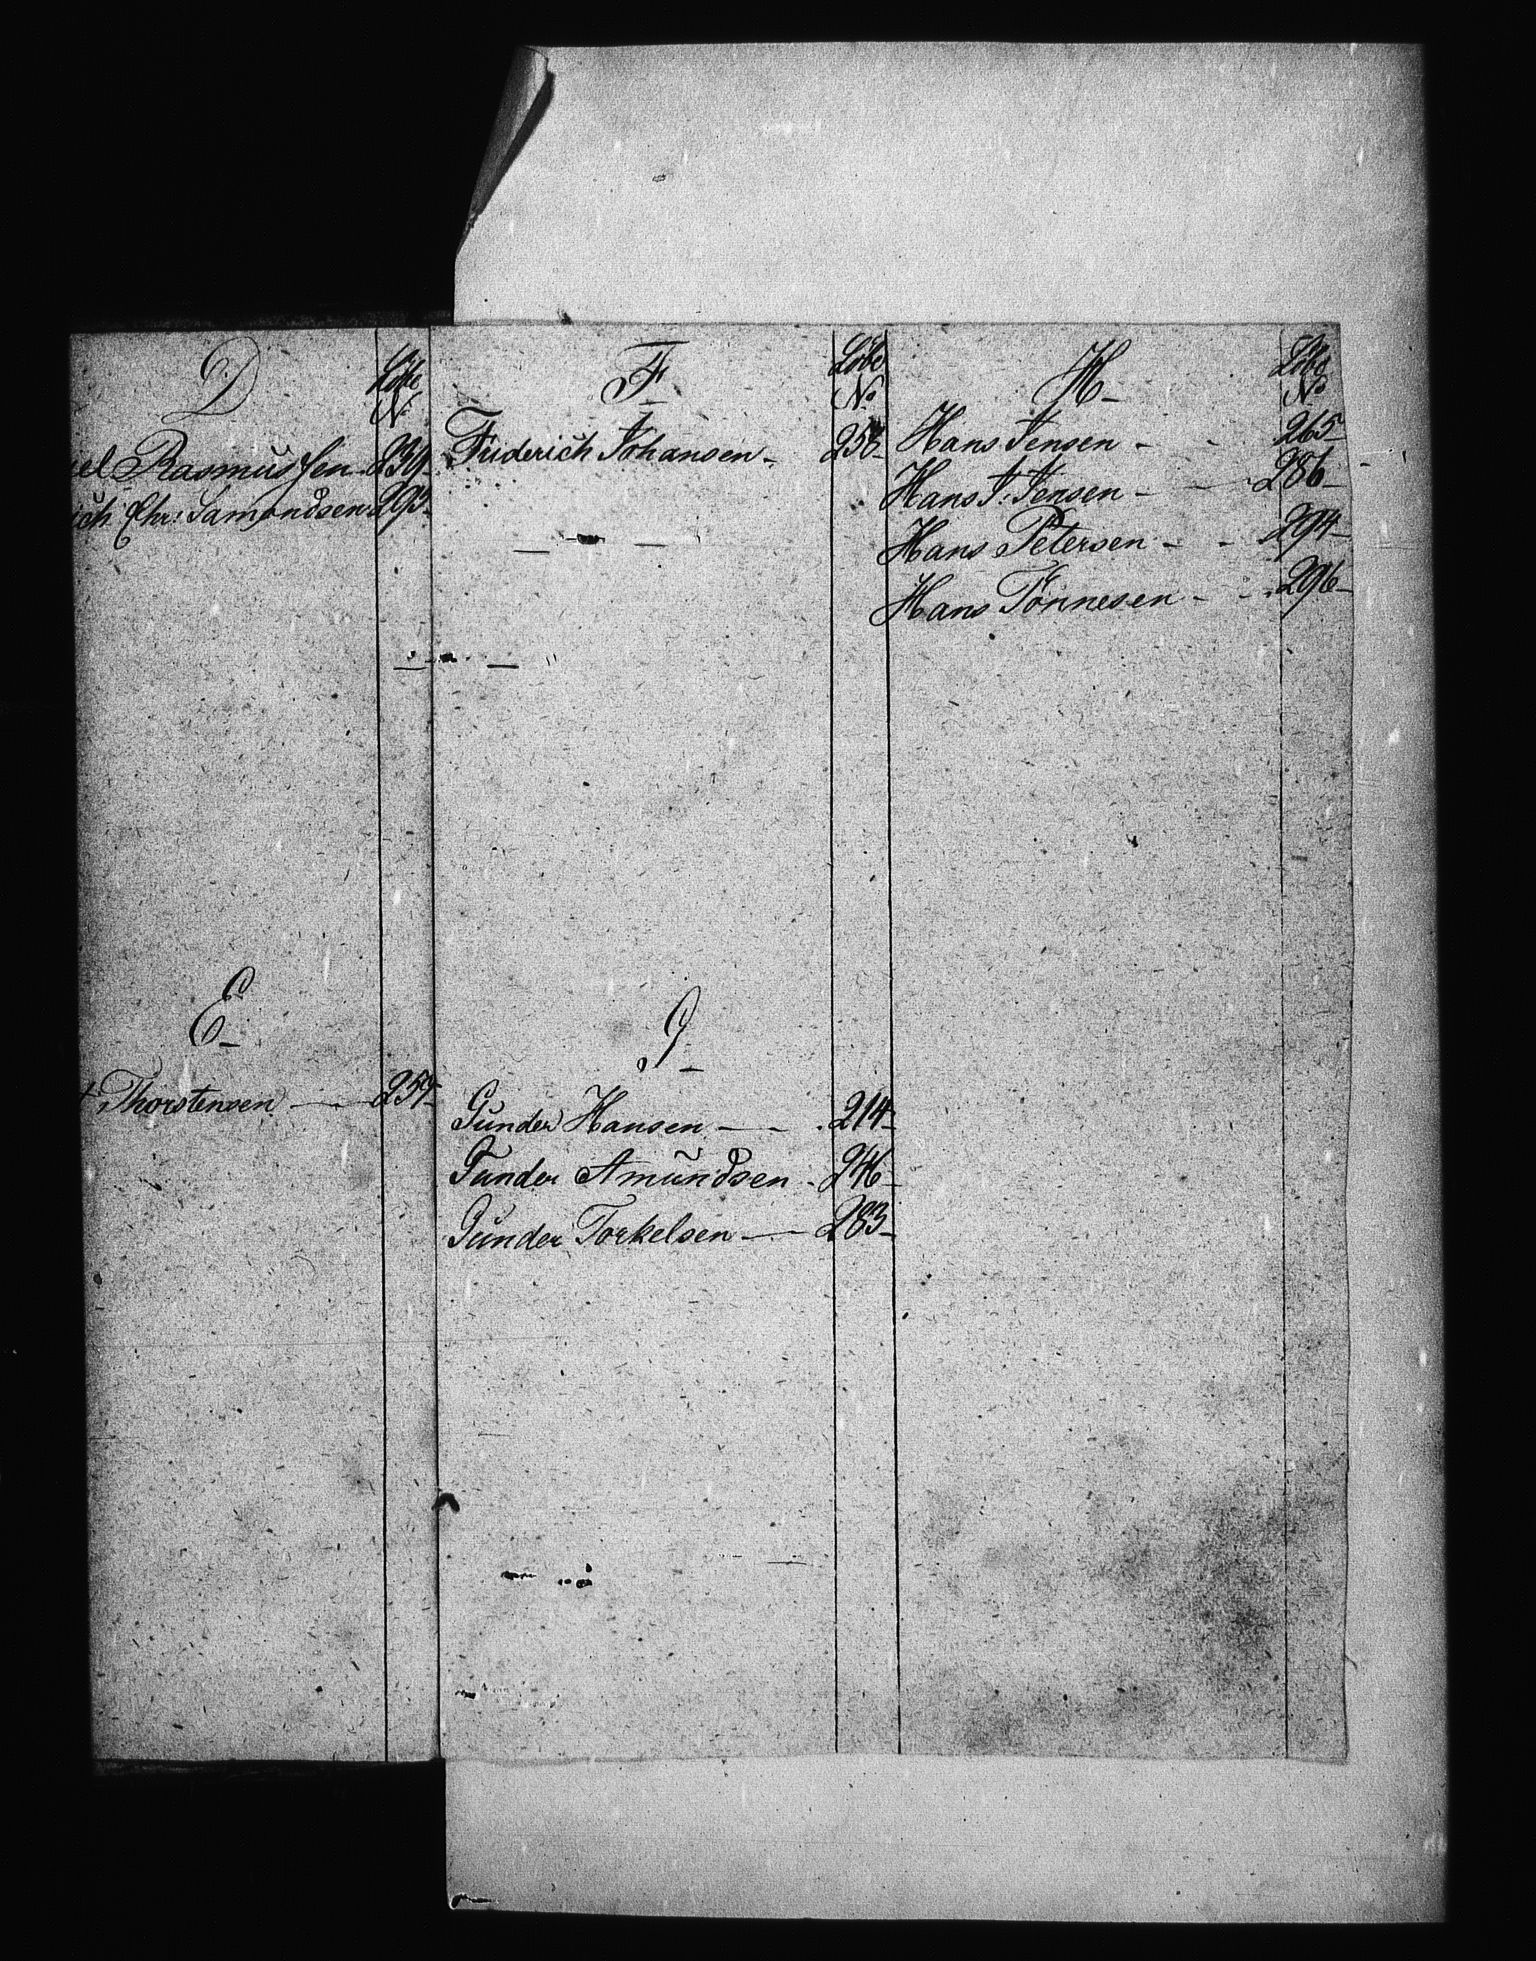 D
Løbe
No
iel Rasmussen 239
ich Chr: Samondsen 293
E
Thorstensen 259
F
Løbe
No
Friderich Johansen 258
G
Gunder Hansen 214
Gunder Amundsen 246
Gunder Torkelsen 283
H
Løbe
No
Hans Jensen 265
Hans J: Jensen 286
Hans Petersen 294
Hans Tönnesen 296